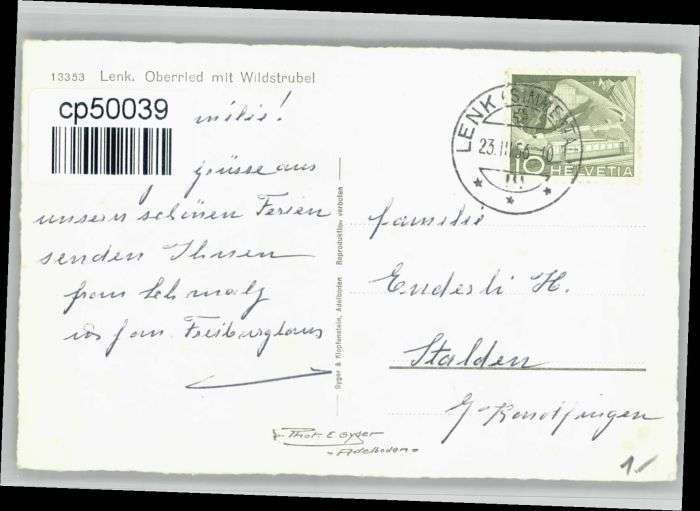 13353 Lenk. Oberried mit Wildstrubel
cp50039
milie!
grüsse aus
unsern schönen Ferien
senden Ihnen
fam Schmalz
Freiburghaus
Gyger & Klopfenstein, Adelboden Reproduktion verboten
LENK (SIMMENTAL)
23.III.56-10
10 HELVETIA
Familie
Enderli H.
Stalden
b/ Konolfingen
Phot. E. Gyger
-Adelboden-
1/